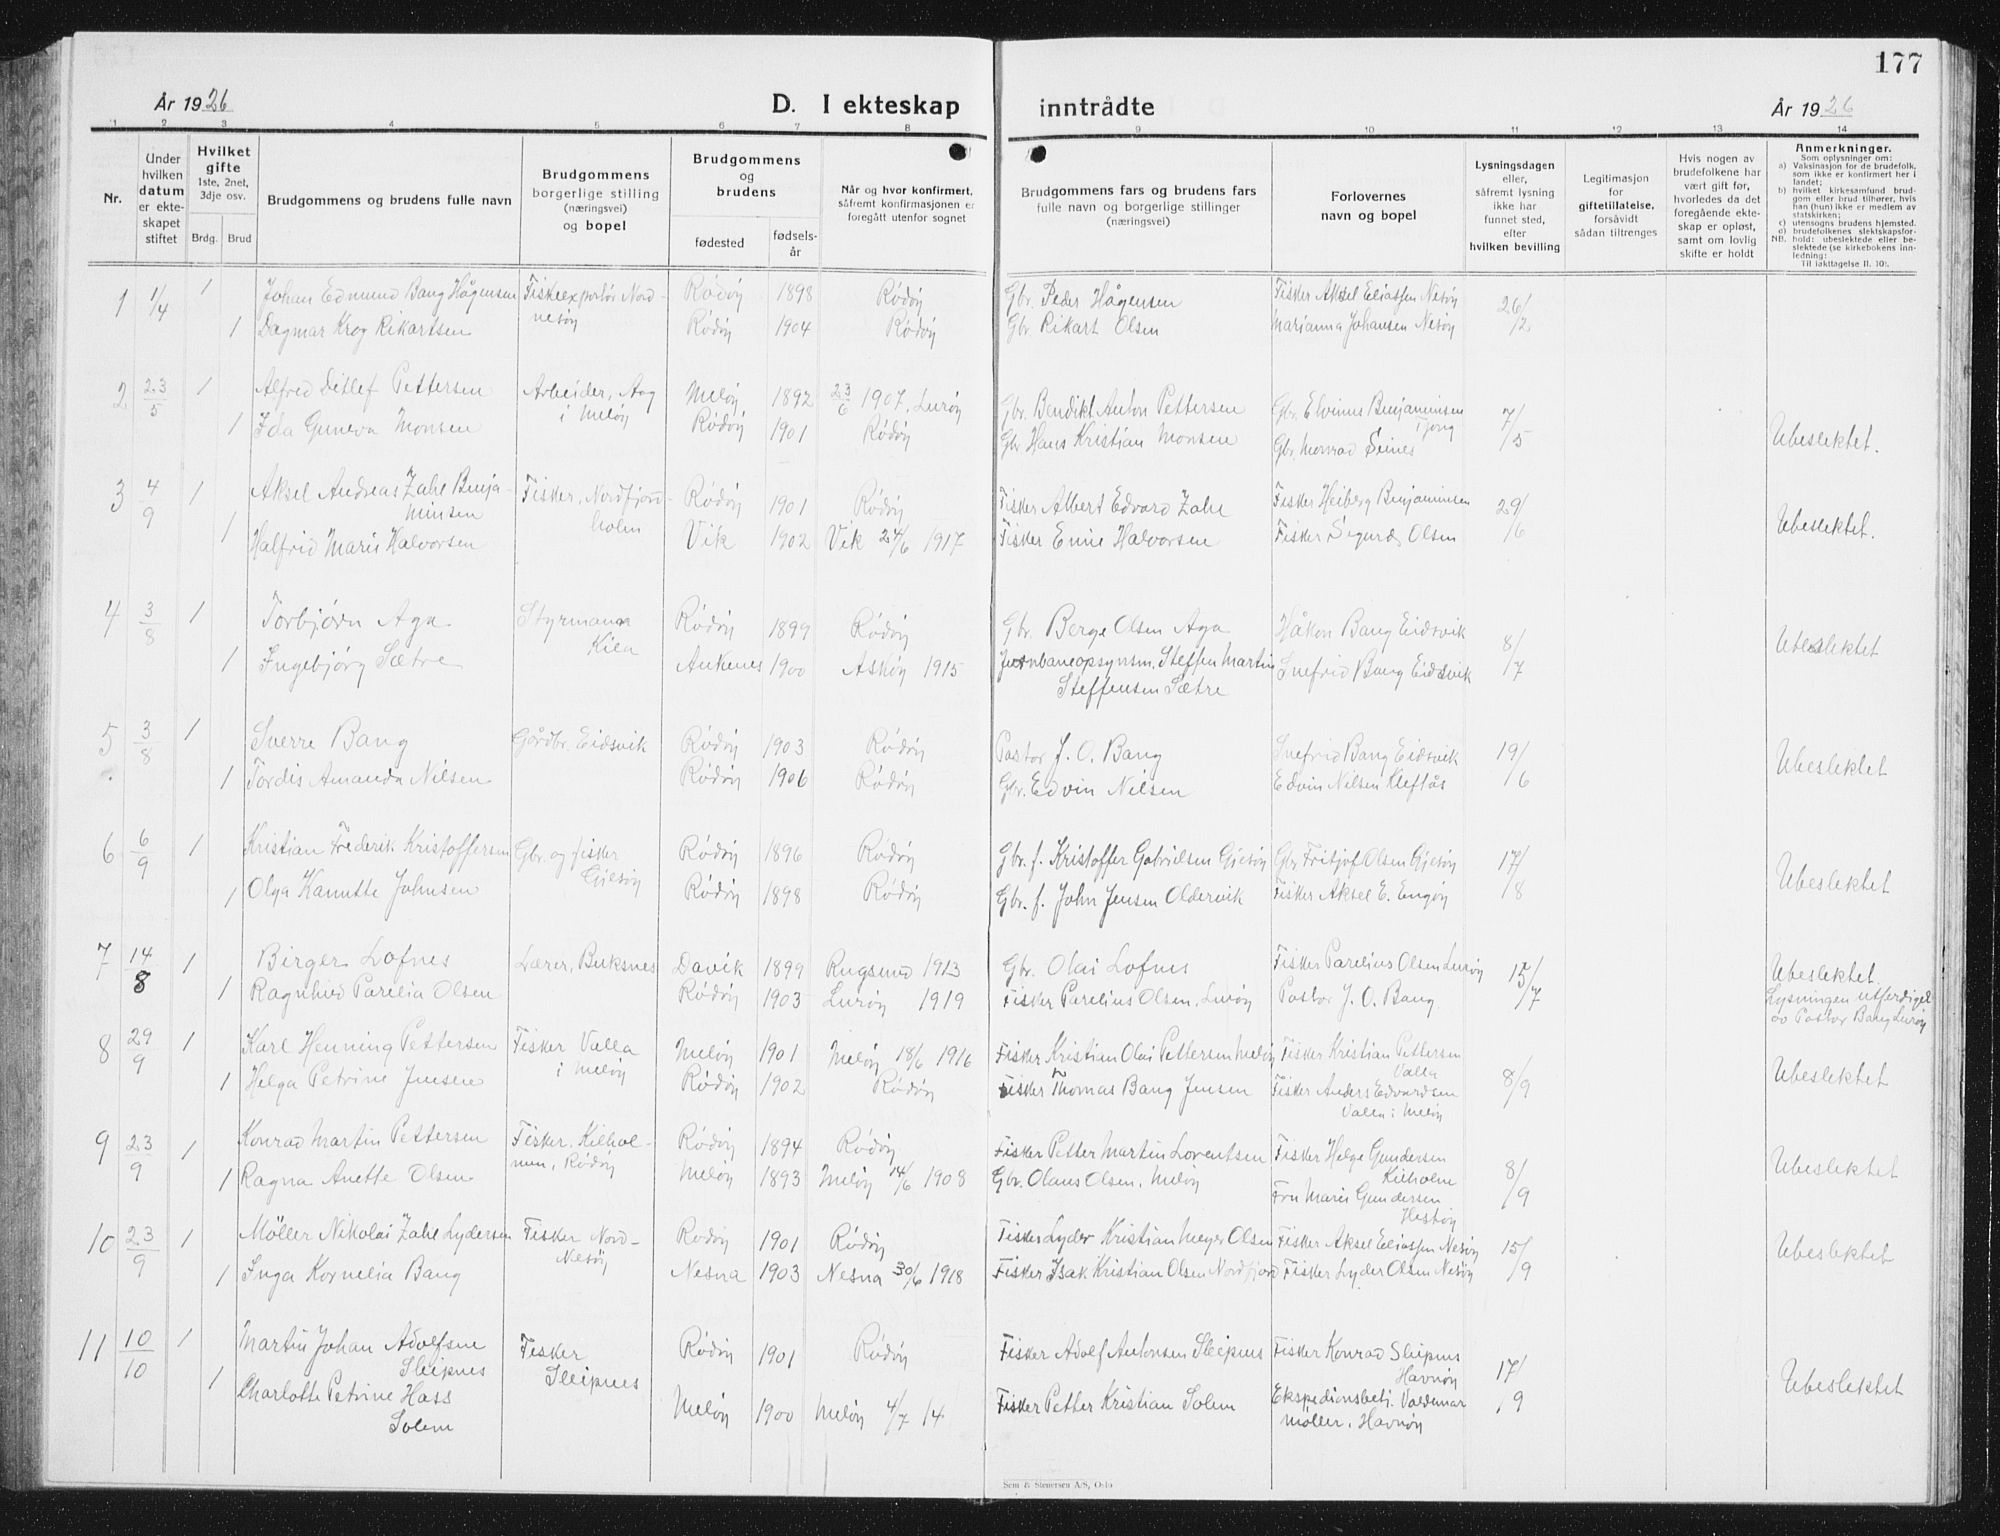 177
År 1926 D. I ekteskap inntrådte År 1926
1 2 3 4 5 6 7 8 9 10 11 12 13 14
Nr.
Under hvilken datum er ekteskapet stiftet
Hvilket gifte 1ste, 2net, 3dje osv. Brdg. Brud
Brudgommens og brudens fulle navn
Brudgommens borgerlige stilling (næringsvei) og bopel
Brudgommens og brudens fødested fødselsår
Når og hvor konfirmert, såfremt konfirmasjonen er foregått utenfor sognet
Brudgommens fars og brudens fars fulle navn og borgerlige stillinger (næringsvei)
Forlovernes navn og bopel
Lysningsdagen eller, såfremt lysning ikke har funnet sted, efter hvilken bevilling
Legitimasjon for giftetillatelse, forsåvidt sådan tiltrenges
Hvis nogen av brudefolkene har vært gift før, hvorledes da det foregående ekteskap er opløst, samt om lovlig skifte er holdt
Anmerkninger.
Som oplysninger om:
a) Vaksinasjon for de brudefolk, som ikke er konfirmert her i landet;
b) hvilket kirkesamfund brudgom eller brud tilhører, hvis han (hun) ikke er medlem av statskirken;
c) utensogns brudens hjemsted.
d) brudefolkenes slektskapsforhold: ubeslektede eller beslektede (se kirkebokens innledning:
NB. Til iakttagelse II. 10).
1 1/4 1 Johan Edmund Bang Hågensen Fiskeexportør Nordnesøy Rødøy 1898 Rødøy Gbr. Peder Hågensen Fisker Aksel Eliassen Nesøy 26/2
1 Dagmar Krog Rikartsen Rødøy 1904 Rødøy Gbr. Rikart Olsen Marianna Johansen Nesøy
2 23/5 1 Alfred Ditlef Pettersen Arbeider, Aag i Meløy Meløy 1892 23/6 1907, Lurøy Gbr. Bendikt Anton Pettersen Gbr. Elvinus Benjaminsen Tjong 7/5 Ubeslektet.
1 Ida Guneva Monsen Rødøy 1901 Rødøy Gbr Hans Kristian Monsen Gbr. Monrad Seines
3 4/9 1 Aksel Andreas Zahl Benjaminsen Fisker, Nordfjordholm Rødøy 1901 Rødøy Fisker Albert Edvard Zahl Fisker Heiberg Benjaminsen 29/6 Ubeslektet.
1 Halfrid Marie Halvorsen Vik 1902 Vik 24/6 1917 Fisker Enine Halvorsen Fisker Sigurd Olsen
4 3/8 1 Torbjørn Aga Styrmann Kila Rødøy 1899 Rødøy Gbr. Berge Olsen Aga Håkon Bang Eidsvik 8/7 Ubeslektet
1 Ingebjørg Sætre Ankenes 1900 Askøy 1915 Jernbaneopsynsm. Steffen Martin Steffensen Sætre Snefrid Bang Eidsvik
5 3/8 1 Sverre Bang Gårdbr. Eidsvik Rødøy 1903 Rødøy Pastor J. O. Bang Snefrid Bang Eidsvik 19/6 Ubeslektet
1 Tordis Amanda Nilsen Rødøy 1906 Rødøy Gbr. Edvin Nilsen Edvin Nilsen Kleftås
6 6/9 1 Kristian Frederik Kristoffersen Gbr. og fisker Gjesøy Rødøy 1896 Rødøy Gbr. f. Kristoffer Gabrielsen Gjesøy Gbr Fritjof Olsen Gjesøy 17/8 Ubeslektet
1 Olga Kanutte Johnsen Rødøy 1898 Rødøy Gbr. f. John Jensen Oldervik Fisker Aksel E. Engøy
7 14/8 1 Birger Lofnes Lærer, Buksnes Davik 1899 Rugsund 1913 Gbr. Olai Lofnes Fisker Parelius Olsen Lurøy 15/7 Ubeslektet.
1 Ragnhild Parelia Olsen Rødøy 1903 Lurøy 1919 Fisker Parelius Olsen, Lurøy Pastor J. O. Bang. Lysningen utferdiget av Pastor Bang Lurøy
8 29/9 1 Karl Henning Pettersen Fisker Valla i Meløy Meløy 1901 Meløy 18/6 1916 Fisker Kristian Olai Pettersen Meløy Fisker Kristian Pettersen Valla 8/9 Ubeslektet
1 Helga Petrine Jensen Rødøy 1902 Rødøy Fisker Thomas Bang Jensen Fisker Anders Edvardsen Valla i Meløy
9 23/9 1 Konrad Martin Pettersen Fisker, Kilholmen, Rødøy Rødøy 1894 Rødøy Fisker Petter Martin Lorentsen Fisker Helge Gundersen Kilholm 8/9 Ubeslektet
1 Ragna Anette Olsen Meløy 1893 Meløy 14/6 1908 Gbr. Olaus Olsen, Meløy Fru Marie Gundersen Hestøy
10 23/9 1 Möller Nikolai Zahl Lydersen Fisker Nord-Nesøy Rødøy 1901 Rødøy Fisker Lyder Kristian Meyer Olsen Fisker Aksel Eliassen Nesøy 15/9 Ubeslektet
1 Inga Kornelia Bang Nesna 1903 Nesna 30/6 1918 Fisker Isak Kristian Olsen Nordfjord Fisker Lyder Olsen Nesøy
11 10/10 1 Martin Johan Adolfsen Sleipnes Fisker Sleipnes Rødøy 1901 Rødøy Fisker Adolf Antonsen Sleipnes Fisker Konrad Sleipnes Havnøy 17/9 Ubeslektet
1 Charlotte Petrine Hass Solem Meløy 1900 Meløy 4/7 14 Fisker Petter Kristian Solem Ekspedionsbetj. Valdemar Möller, Havnøy
Sem & Stenersen A/S, Oslo